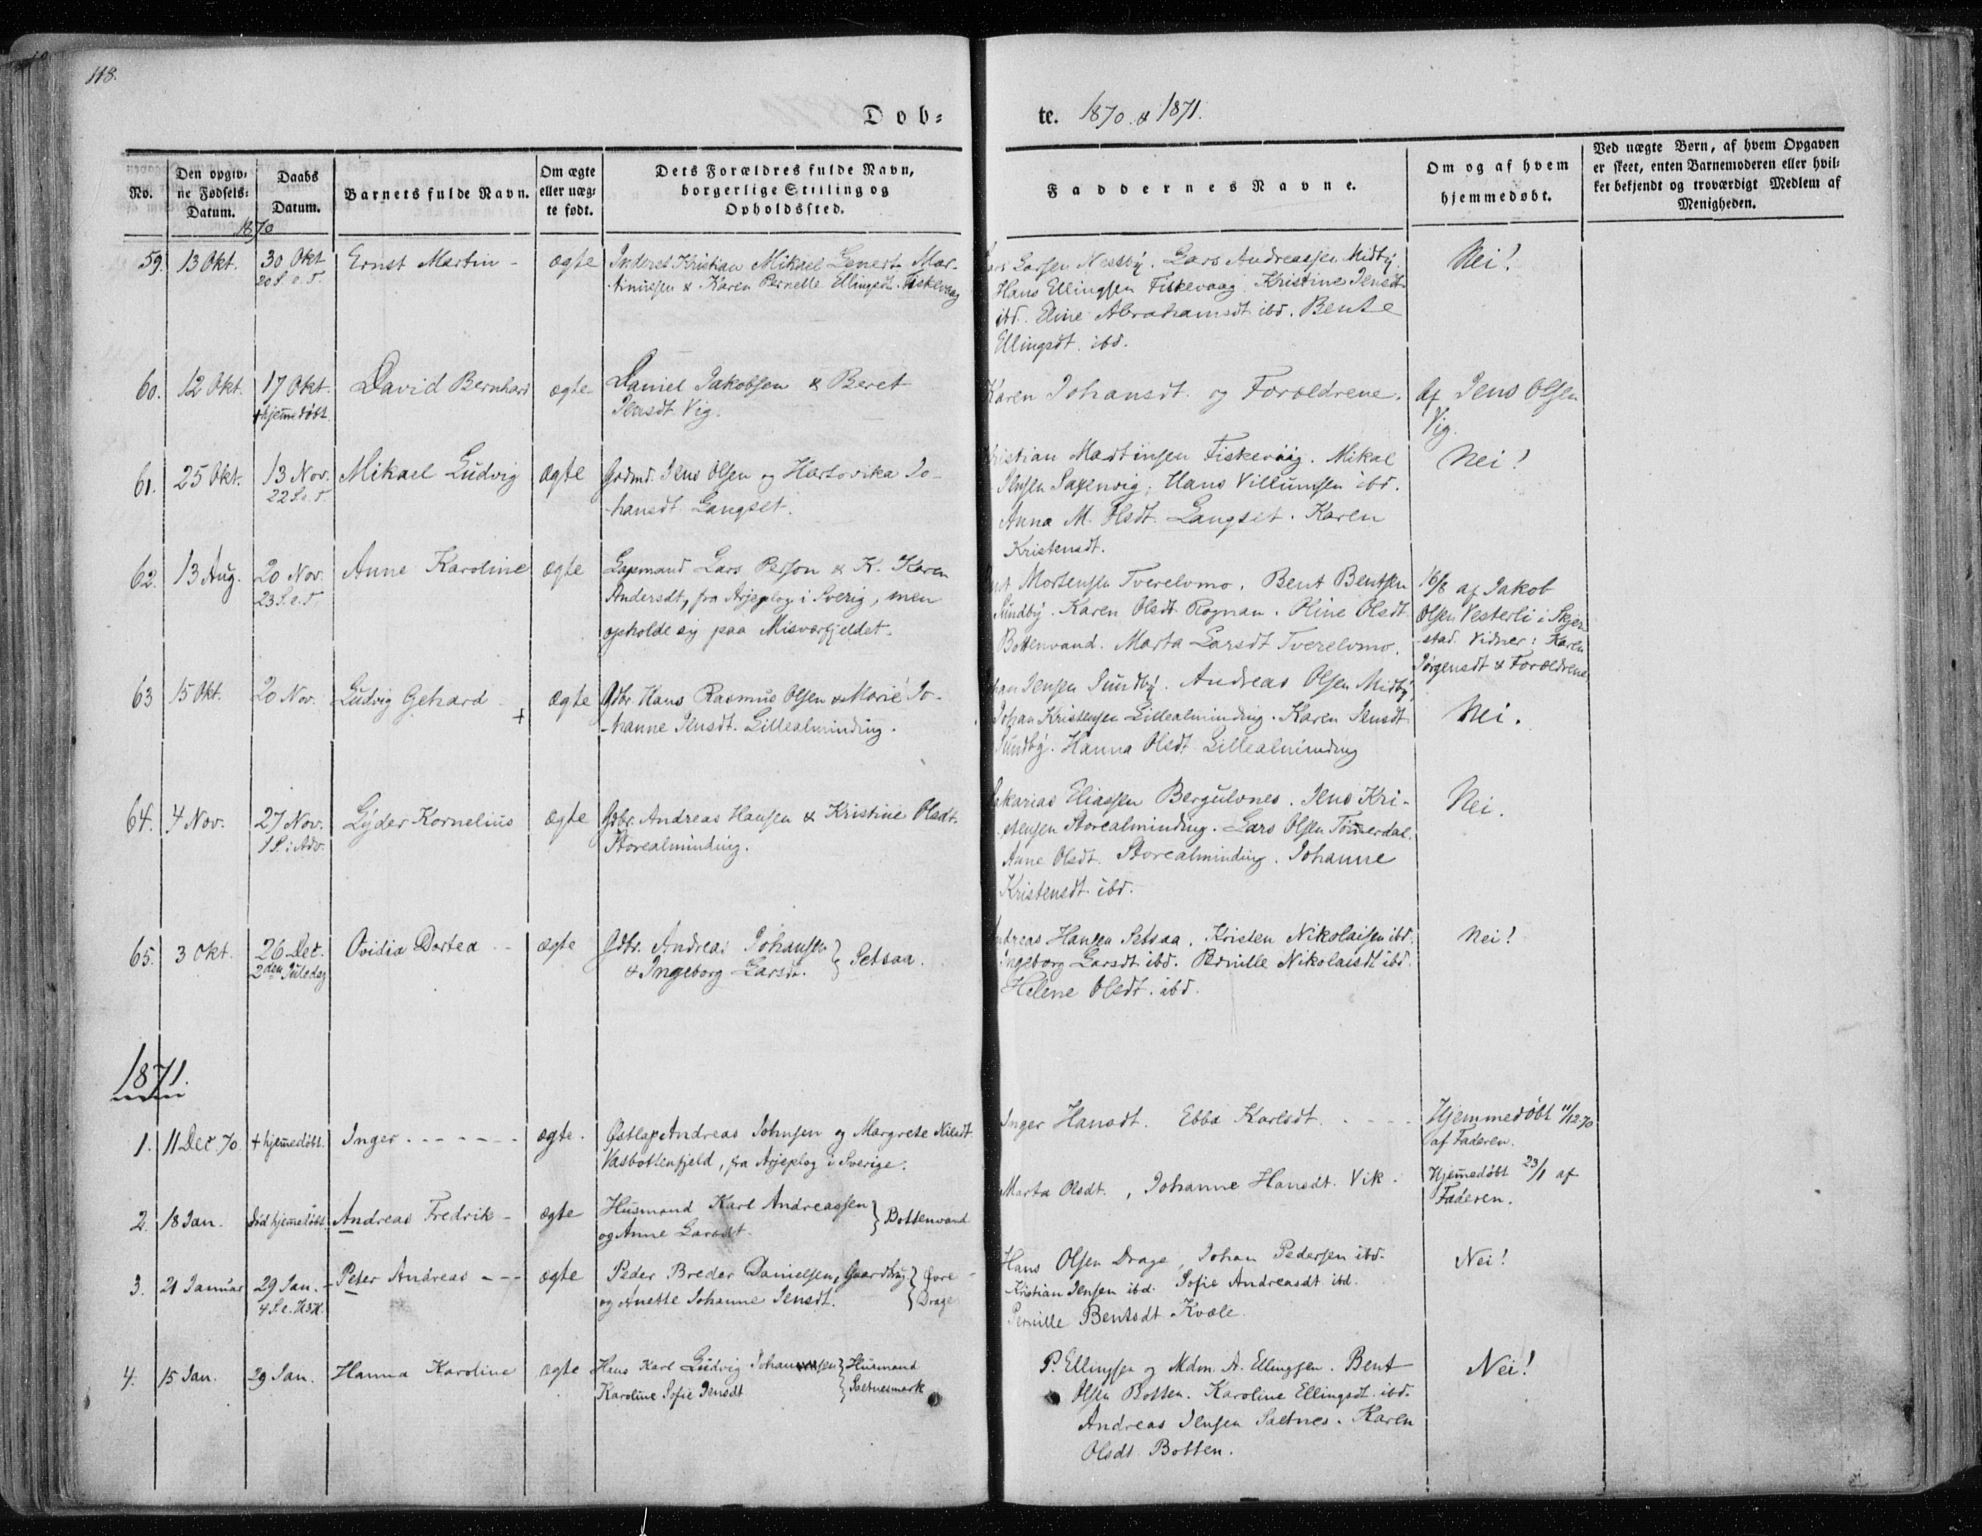 118.
Dob=
te. 1870 & 1871.
No.
Den opgiv-
ne Fødsels-
Datum.
Daabs
Datum.
Barnets fulde Navn.
Om ægte
eller uæg-
te født.
Dets Forældres fulde Navn,
borgerlige Stilling og
Opholdssted.
Faddernes Navne.
Om og af hvem
hjemmedøbt.
Ved uægte Børn, af hvem Opgaven
er skeet, enten Barnemoderen eller hvil-
ket bekjendt og troværdigt Medlem af
Menigheden.
1870
59. 13 Okt. 30 Okt Ernst Martin - ægte Inderst Kristian Mikael Lenert Mar-
20 S. e. T. tinussen & Karen Pernelle Ellingsdt. Fiskevaag
Larsen Nessby. Lars Andreassen Midby
Hans Ellingsen Fiskevaag. Kristine Jensdt
ibd. Eline Abrahamsdt ibd. Bente
Ellingsdt. ibd.
Nei!
60. 12 Okt. 17 Okt. David Bernhard ægte Daniel Jakobsen & Beret
+ hjemedøbt Jensdt. Vig.
Karen Johansdt. og Forældrene.
Af Jens Olsen
Vig.
61. 25 Okt. 13 Nov. Mikael Ludvig ægte Grdmd. Jens Olsen og Hartvika Jo-
22 S. e. T hansdt Langset.
Kristian Martinsen Fiskevaag. Mikal
Jensen Saxenvig. Hans Villumsen ibd.
Anna M. Olsdt. Langset. Karen
Kristensdt.
Nei!
62. 13 Aug. 20 Nov. Anne Karoline ægte Lapmand Lars Person & K. Karen
23 S. e. T Andersdt, fra Arjeplog i Sverig, men
opholde sig paa Misværfjeldet.
Mortensen Tverelvmo. Bent Bentsen
Sundby. Karen Olsdt Rognan. Oline Olsdt
Bottenvand. Marta Larsdt Tverelvmo.
16/8 af Jakob
Olsen Vesterli i Skjer-
stad. Vidner: Karen
Jørgensdt & Forældrene
63 15 Okt. 20 Nov. Ludvig Gehard + ægte Gdbr. Hans Rasmus Olsen & Marie Jo-
hanne Jensdt. Lillealminding.
Jensen Sundby. Andreas Olsen Midby
Johan Kristensen Lillealminding. Karen Jensdt
Sundby. Hanna Olsdt Lillealminding
Nei.
64. 4 Nov. 27 Nov. Lyder Kornelius ægte Gdbr. Andreas Hansen & Kristine Olsdt.
1 S. i Adv. Storealminding.
Zakarias Eliassen Bergulvnes. Jens Kri-
stensen Storealminding. Lars Olsen Tømerdal.
Anne Olsdt. Storealminding. Johanne
Kristensdt ibd.
Nei.
65. 3 Okt. 26 Dec. Ovidia Dortea - - ægte Gdbr. Andreas Johansen } Setsaa.
2den Juledag & Ingeborg Larsdt.
Andreas Hansen Setsaa. Kristen Nikolaisen ibd.
Ingeborg Larsdt ibd. Pernille Nikolaisdt ibd.
Helene Olsdt. ibd.
Nei!
1871.
1. 11 Dec 70 + hjemedøbt. Inger - - - - - - ægte. Østlap Andreas Johnsen og Margrete Nilsdt.
Vasbottenfjeld, fra Arjeplog i Sverige.
Inger Hansdt. Ebba Karlsdt. - - - -
Hjemmedøbt 11/12 70
af Faderen.
2. 18 Jan. død hjemedøbt Andreas Fredrik - ægte Husmand Karl Andreassen } Bottenvand
og Anne Larsdt.
Marta Olsdt. , Johanne Hansdt. Vik.
Hjemedøbt 23/1 af
Faderen.
3. 21 Januar 29 Jan. - Peter Andreas - - - ægte Peder Breder Danielsen, Gaardbrug } Øvre
4 S. e. H3K. og Anette Johanne Jensdt. } Drage
Hans Olsen Drage, Johan Pedersen ibd.
Kristian Jensen ibd. Sofie Andreasdt ibd.
Pernille Bentsdt Kvæle.
Nei!
4. 15 Jan. 29 Jan. Hanna Karoline ægte Hans Karl Ludvig Johannesen } Husmand
Karoline Sofie Jensdt } Saetnesmark
P. Ellingsen og Mdm A. Ellingsen. Bent
Olsen Botten. Karoline Ellingsdt. ibd.
Andreas Jensen Saetnes. Karen
Olsdt Botten.
Nei!